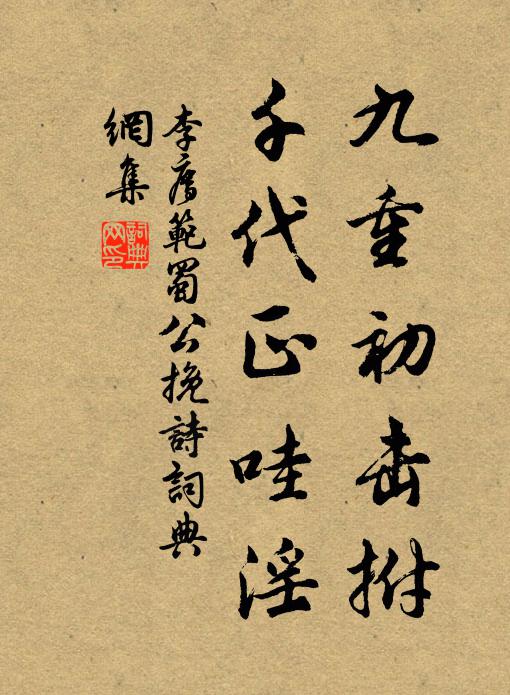 九重初击拊
千代正哇淫
李廌範蜀公挽詩詞典
網集
詞典
网印